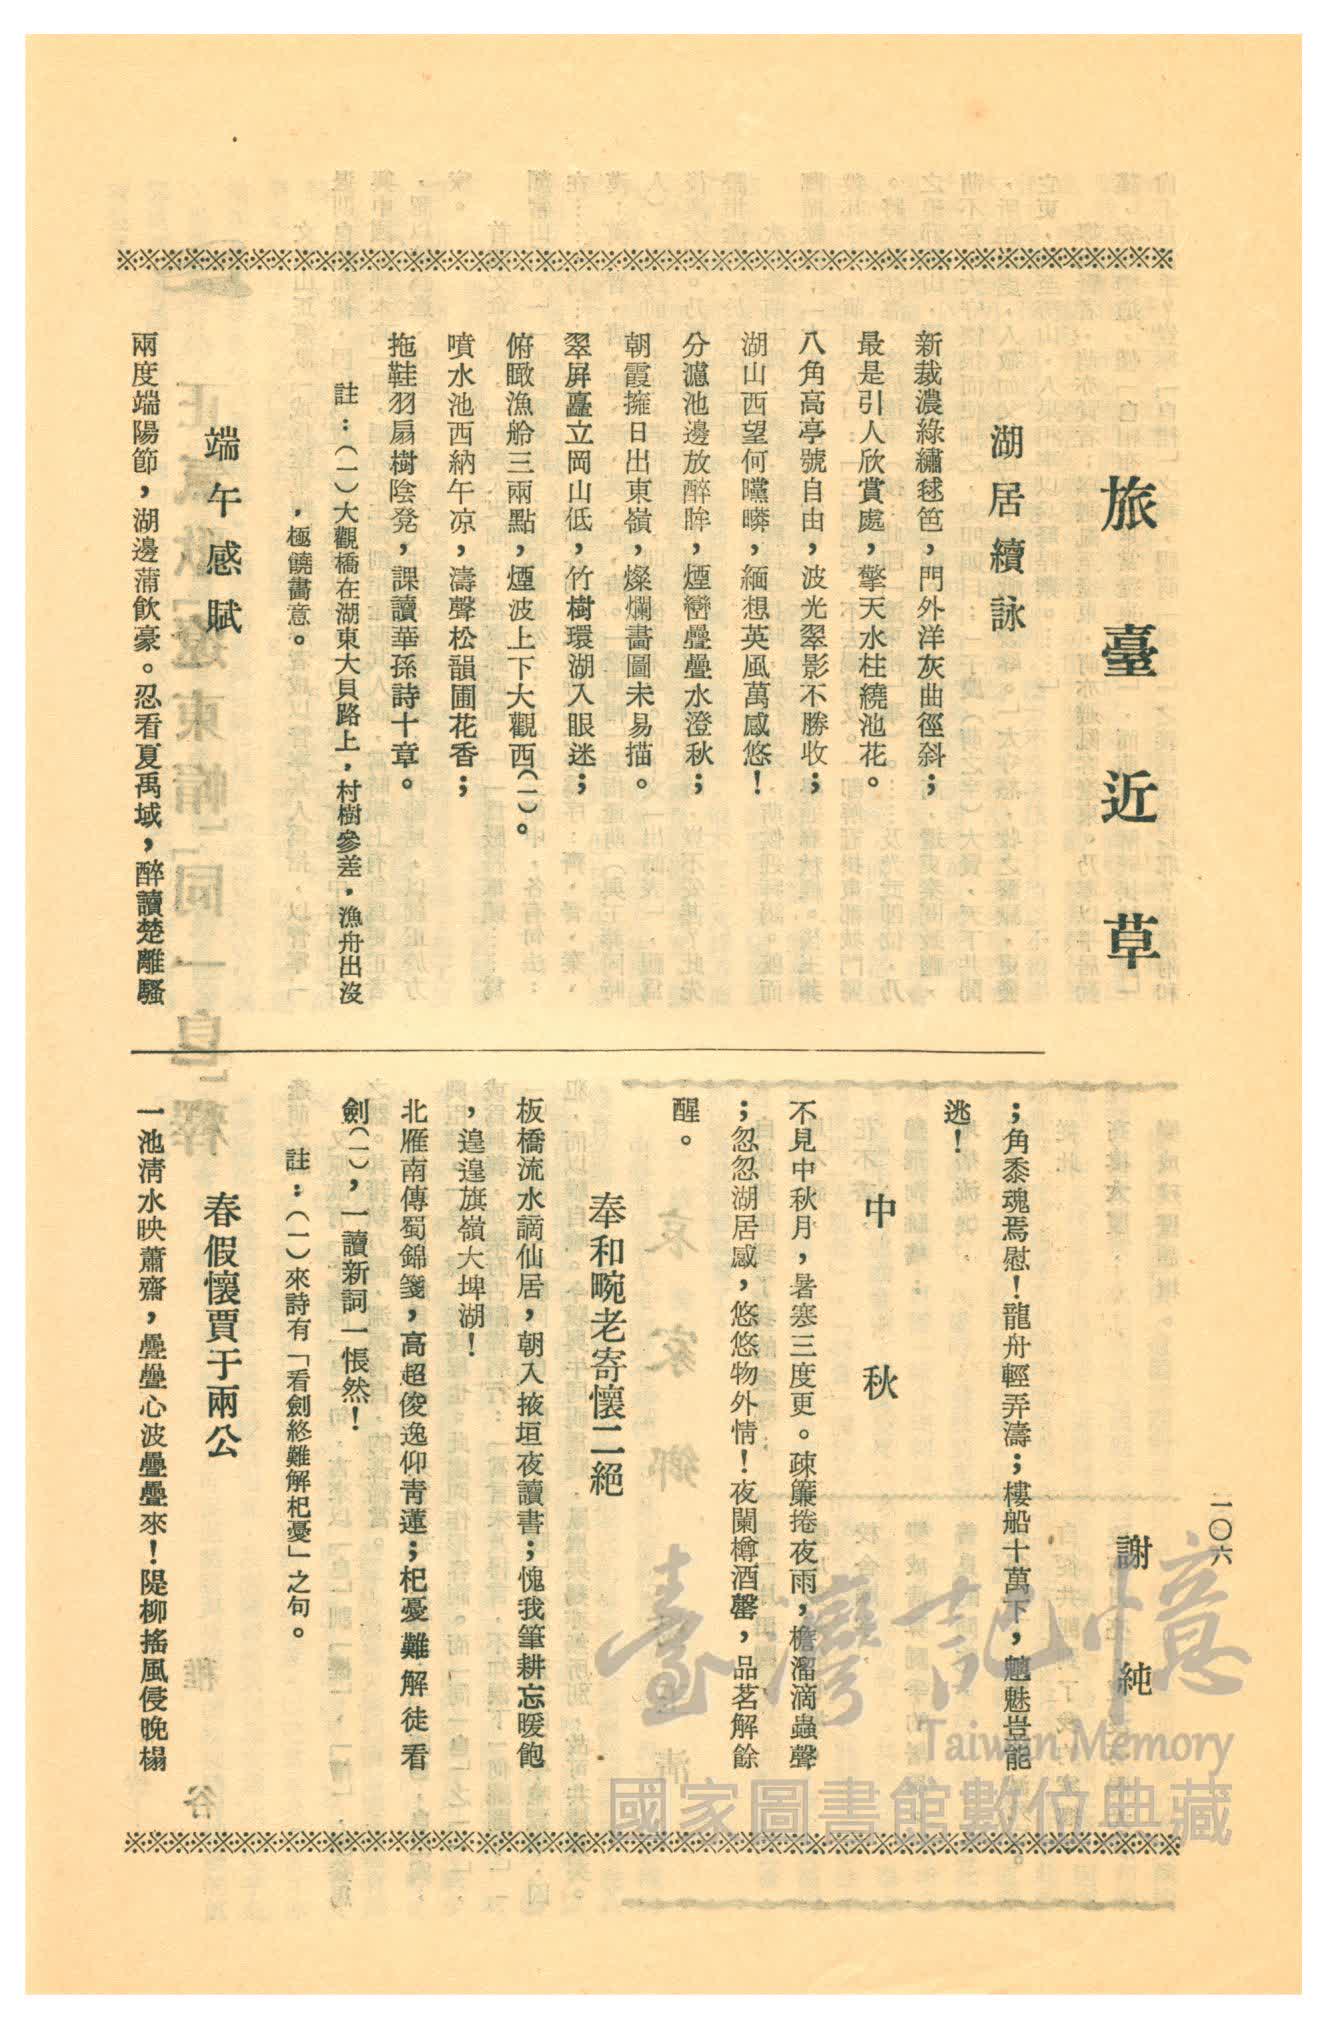 旅臺近草
謝純
一〇六
湖居續詠
新裁濃綠繡毬笆，門外洋灰曲徑斜；
最是引人欣賞處，擎天水柱繞池花。
八角高亭號自由，波光翠影不勝收；
湖山西望何曭疄，緬想英風萬感悠！
分濾池邊放醉眸，煙巒疊疊水澄秋；
朝霞擁日出東嶺，燦爛畵圖未易描。
翠屏矗立岡山低，竹樹環湖入眼迷；
俯瞰漁舲三兩點，煙波上下大觀西(一)。
噴水池西納午凉，濤聲松韻圃花香；
拖鞋羽扇樹陰凳，課讀華孫詩十章。
註：(一)大觀橋在湖東大貝路上，村樹參差，漁舟出沒
，極饒畵意。
端午感賦
兩度端陽節，湖邊蒲飲豪。忍看夏禹域，醉讀楚離騷
；角黍魂焉慰！龍舟輕弄濤；樓船十萬下，魑魅豈能
逃！
中秋
不見中秋月，暑寒三度更。疎簾捲夜雨，檐溜滴蟲聲
；忽忽湖居感，悠悠物外情！夜闌樽酒罄，品茗解餘
醒。
奉和畹老寄懷二絕
板橋流水謫仙居，朝入掖垣夜讀書；愧我筆耕忘暖飽
，遑遑旗嶺大埤湖！
北雁南傳蜀錦箋，高超俊逸仰靑蓮；杞憂難解徒看
劍(一)，一讀新詞一悵然！
註：(一)來詩有「看劍終難解杞憂」之句。
春假懷賈于兩公
一池淸水映蕭齋，疊疊心波疊疊來！隄柳搖風侵晚榻
臺灣記憶
Taiwan Memory
國家圖書館數位典藏